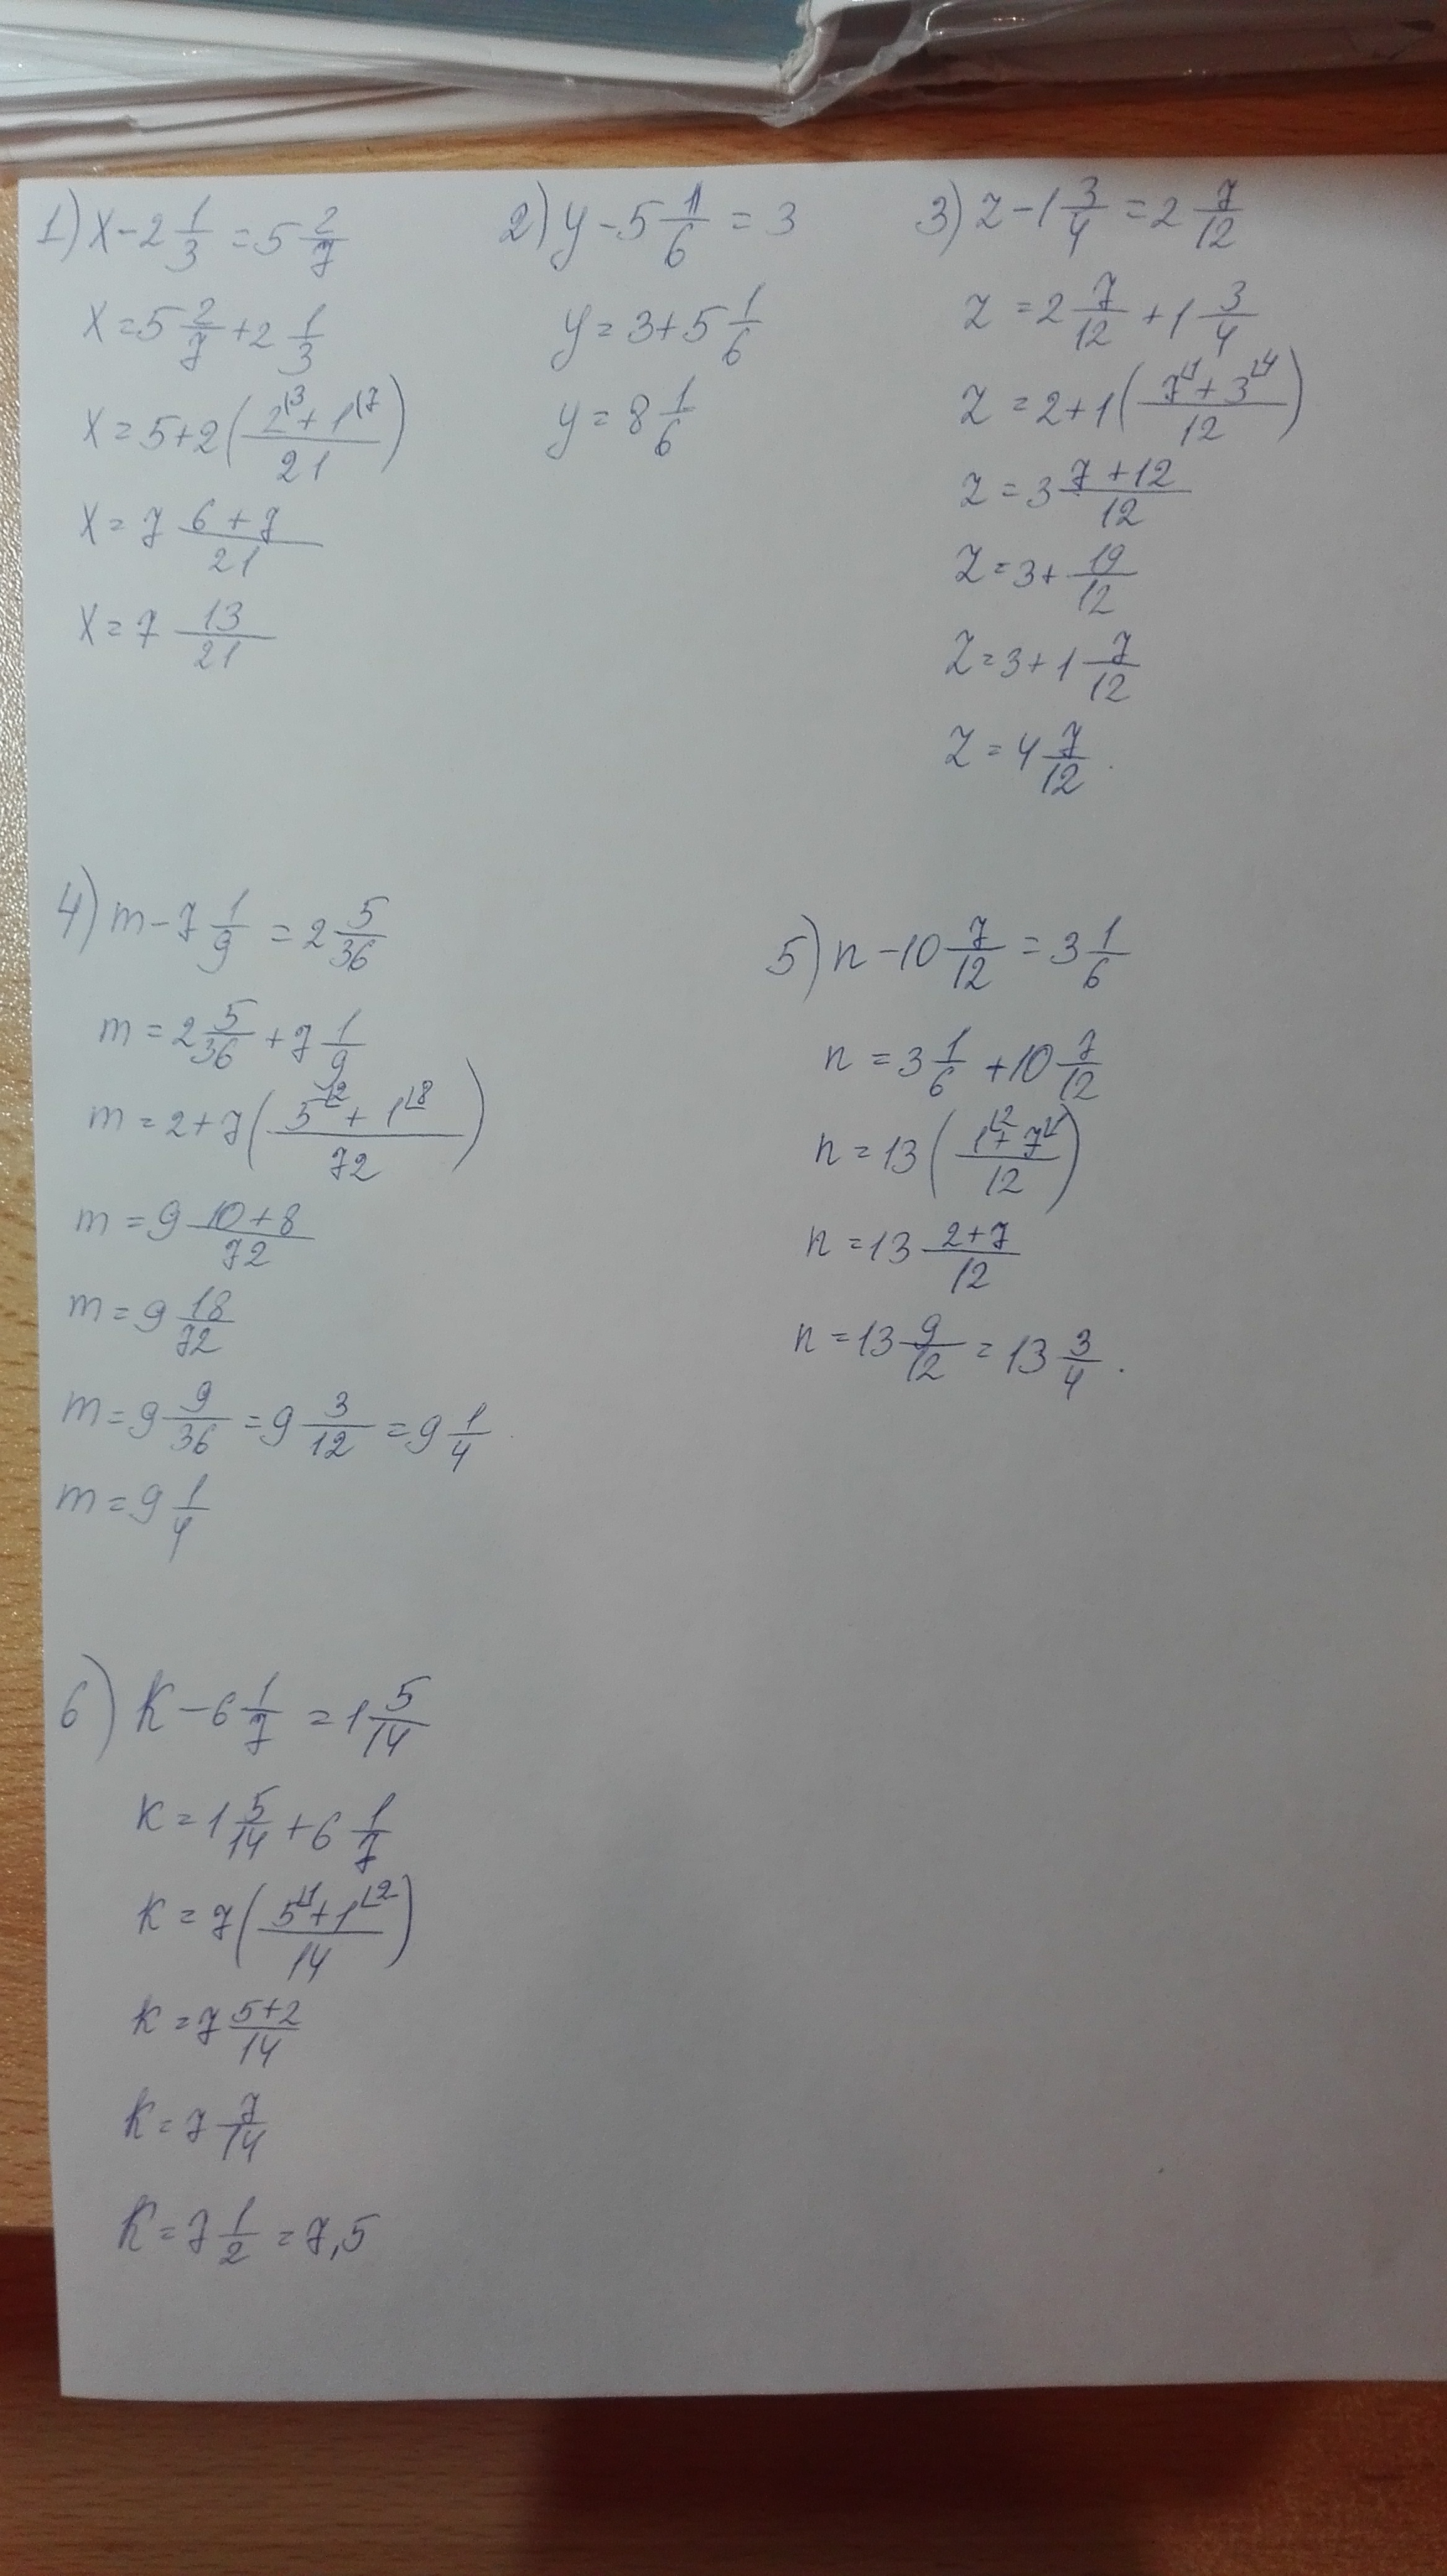 1) x - 2 1/3 = 5 2/7
x = 5 2/7 + 2 1/3
x = 5 + 2 ( (2⌊3 + 1⌊7)/21 )
x = 7 (6 + 7)/21
x = 7 13/21
2) y - 5 1/6 = 3
y = 3 + 5 1/6
y = 8 1/6
3) z - 1 3/4 = 2 7/12
z = 2 7/12 + 1 3/4
z = 2 + 1 ( (7⌊1 + 3⌊4)/12 )
z = 3 (7 + 12)/12
z = 3 + 19/12
z = 3 + 1 7/12
z = 4 7/12.
4) m - 7 1/9 = 2 5/36
m = 2 5/36 + 7 1/9
m = 2 + 7 ( (5⌊2 + 1⌊8)/72 )
m = 9 (10 + 8)/72
m = 9 18/72
m = 9 9/36 = 9 3/12 = 9 1/4.
m = 9 1/4
5) n - 10 7/12 = 3 1/6
n = 3 1/6 + 10 7/12
n = 13 ( (1⌊2 + 7⌊1)/12 )
n = 13 (2 + 7)/12
n = 13 9/12 = 13 3/4.
6) k - 6 1/7 = 1 5/14
k = 1 5/14 + 6 1/7
k = 7 ( (5⌊1 + 1⌊2)/14 )
k = 7 (5 + 2)/14
k = 7 7/14
k = 7 1/2 = 7,5